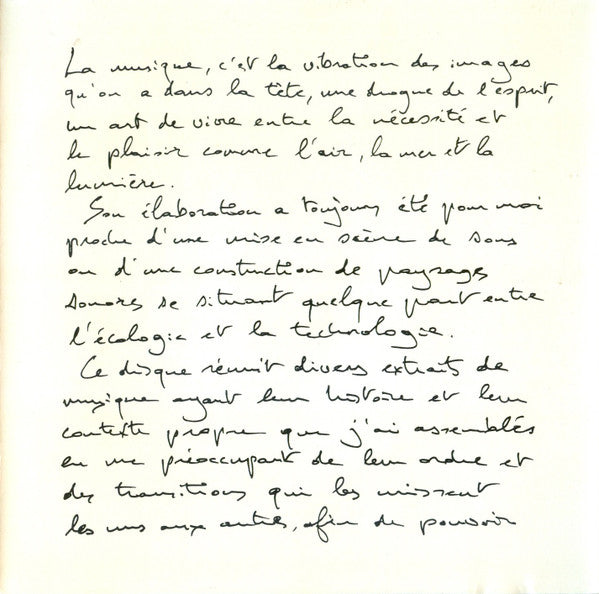 La musique, c'est la vibration des images
qu'on a dans la tête, une drogue de l'esprit,
un art de vivre entre la nécessité et
le plaisir comme l'air, la mer et la
lumière.
Son élaboration a toujours été pour moi
proche d'une mise en scène de sons
ou d'une construction de paysages
sonores se situant quelque part entre
l'écologie et la technologie.
Ce disque réunit divers extraits de
musique ayant leur histoire et leur
contexte propre que j'ai assemblés
en me préoccupant de leur ordre et
des transitions qui les unissent
les uns aux autres, afin de pouvoir